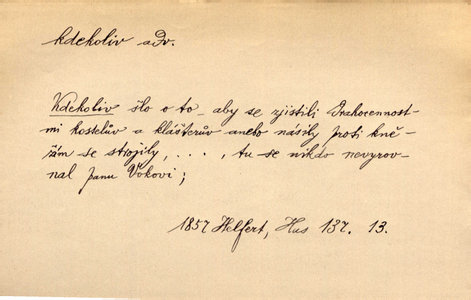 kdekoliv adv.
Kdekoliv šlo o to, aby se zjistili drahocennost-
mi kostelův a klášterův anebo násily proti kně-
žím se strojily, . . . , tu se nikdo nevyrov-
nal panu Vokovi;
1857 Helfert, Hus 137. 13.